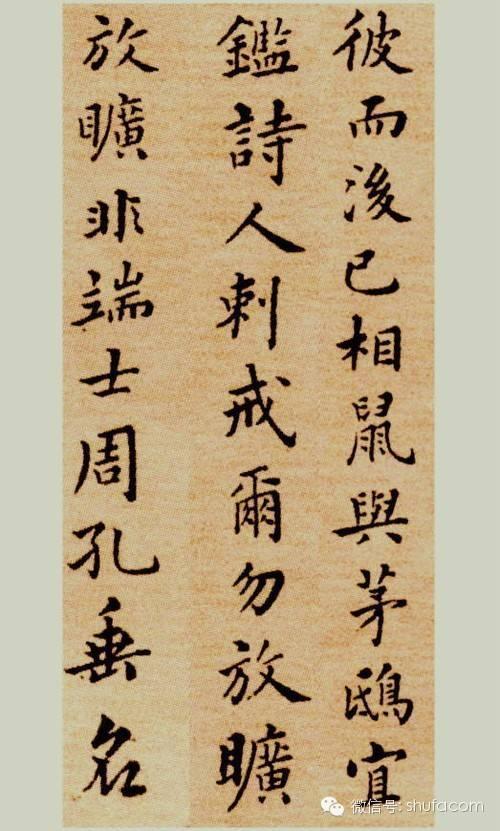 彼而後已相鼠與茅鴟宜
鑑詩人刺戒爾勿放曠
放曠非端士周孔垂名
微信号: shufacom